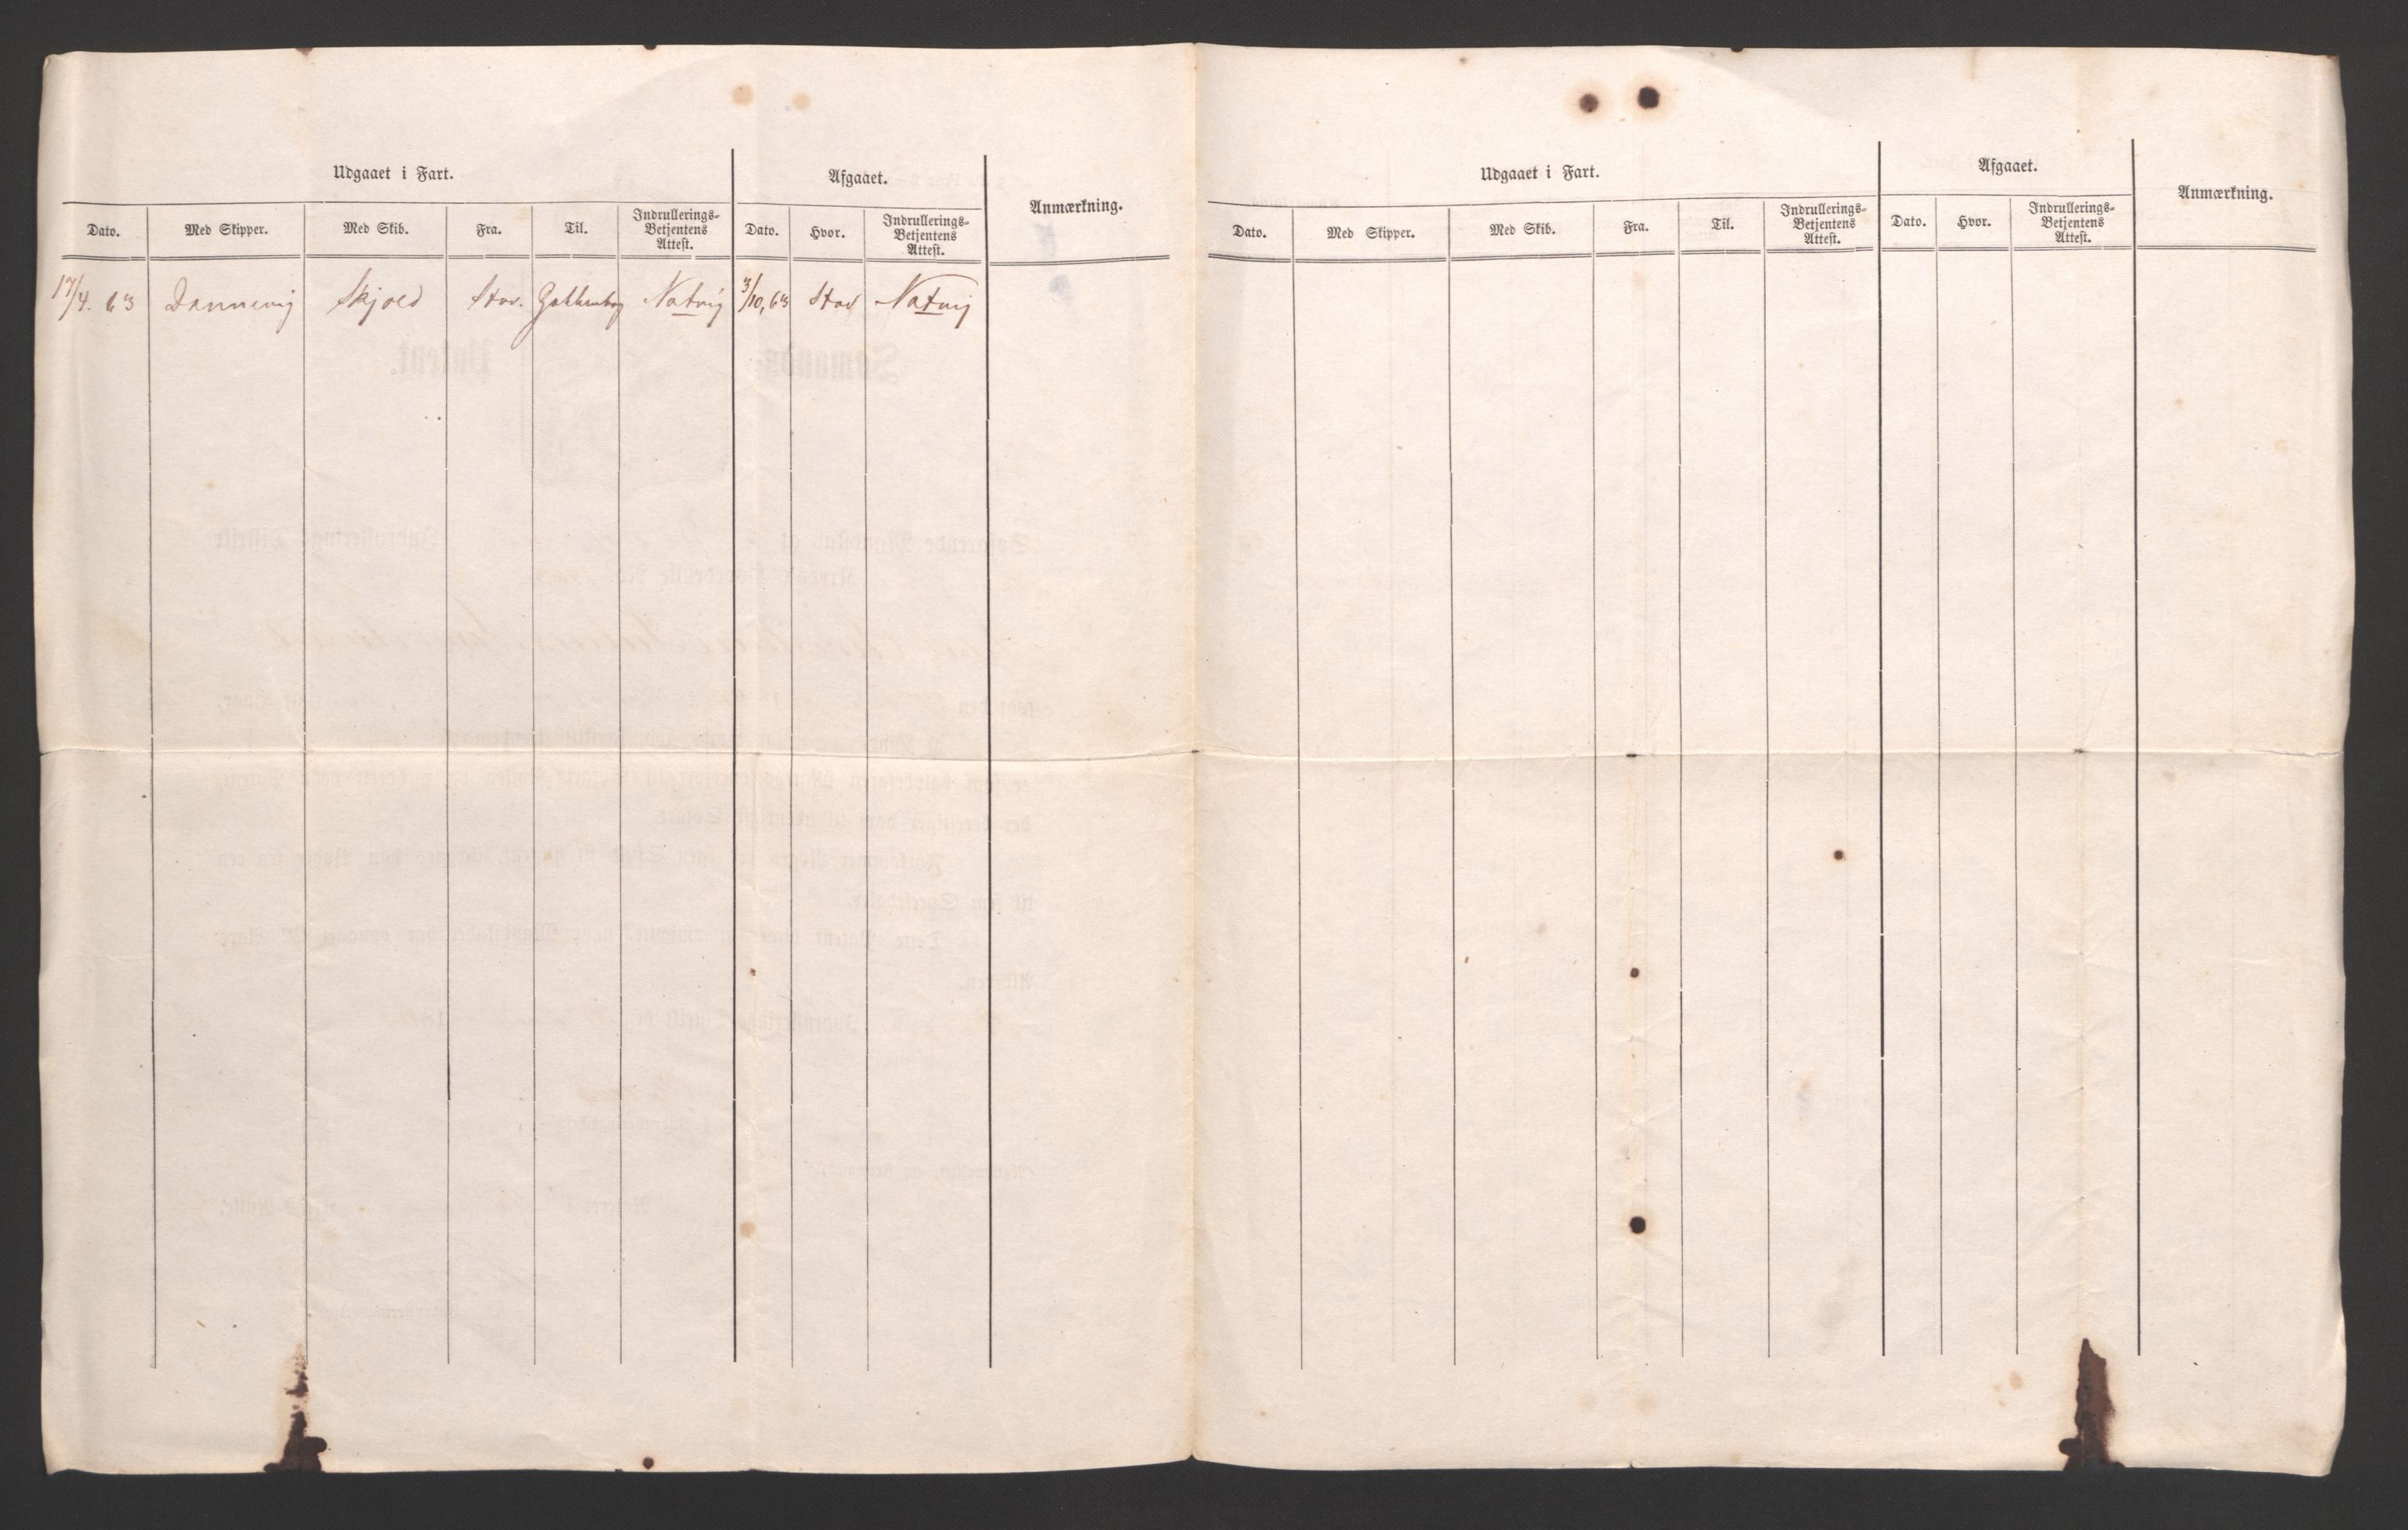 Udgaaet i Fart.
Afgaaet.
Anmærkning.
Dato.
Med Skipper.
Med Skib.
Fra.
Til.
Indrullerings-
Betjentens
Attest.
Dato.
Hvor.
Indrullerings-
Betjentens
Attest.
17/4. 63 Dannevig Skjold Stav. Gothenborg Natvig 3/10, 63 Stav Natvig
Udgaaet i Fart.
Afgaaet.
Anmærkning.
Dato.
Med Skipper.
Med Skib.
Fra.
Til.
Indrullerings-
Betjentens
Attest.
Dato.
Hvor.
Indrullerings-
Betjentens
Attest.